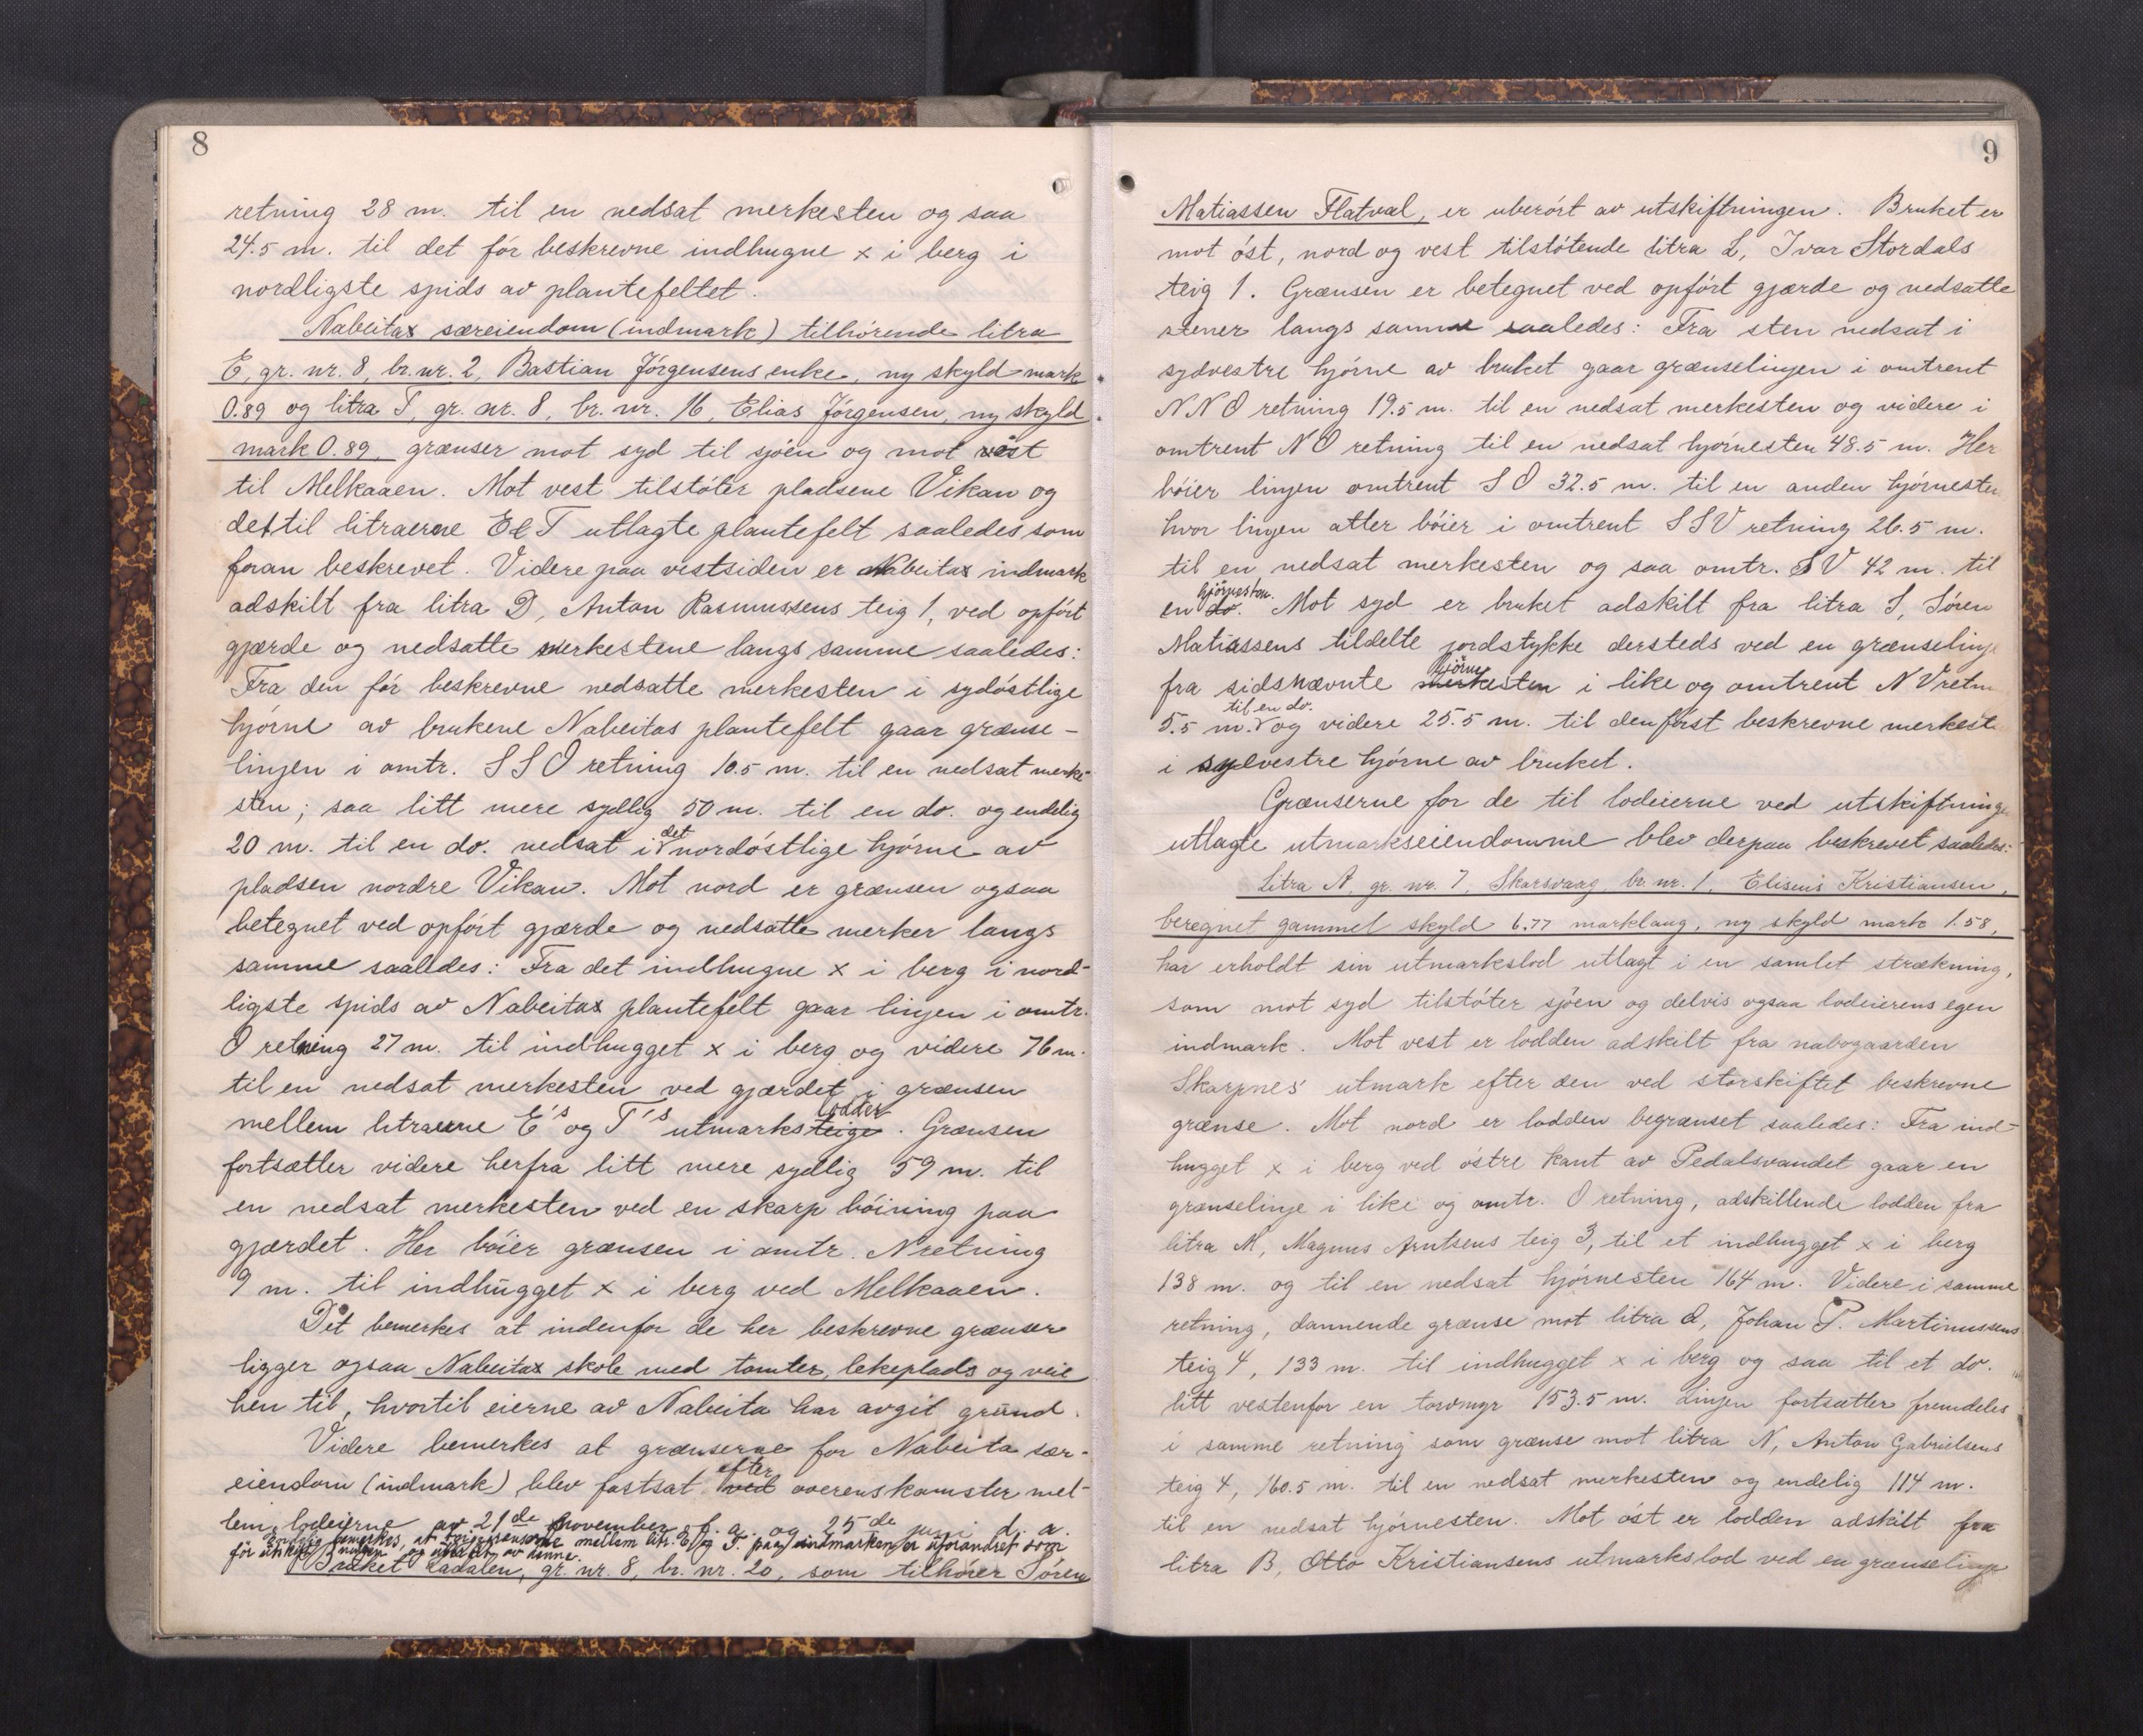 8
retning 28 m. til en nedsat merkesten og saa
24.5 m. til det för beskrevne indhugne x i berg i
nordligste spids av plantefeltet.
Nabeitas særeiendom (indmark) tilhörende litra
E, gr. nr. 8, br. nr. 2, Bastian Jörgensens enke, ny skyld mark
0.89 og litra T, gr. nr. 8, br. nr. 16, Elias Jörgensen, ny skyld
mark 0.89, grænser mot syd til sjöen og mot øst
til Melkaaen. Mot vest tilstöter pladsene Vikan og
det til litraerne E & T utlagte plantefelt saaledes som
foran beskrevet. Videre paa vestsiden er Nabeitas indmark
adskilt fra litra D, Anton Rasmussens teig 1, ved opfört
gjærde og nedsatte merkestene langs samme saaledes:
Fra den för beskrevne nedsatte merkesten i sydöstlige
hjörne av brukene Nabeitas plantefelt gaar grænse-
linjen i omtr. S S O retning 10.5 m. til en nedsat merke-
sten; saa litt mere sydlig 50 m. til en do. og endelig
20 m. til en do. nedsat i det nordöstlige hjörne av
pladsen nordre Vikan. Mot nord er grænsen ogsaa
betegnet ved opfört gjærde og nedsatte merker langs
samme saaledes: Fra det indhugne x i berg i nord-
ligste spids av Nabeitas plantefelt gaar linjen i omtr.
O retning 27 m. til indhugget x i berg og videre 76 m.
til en nedsat merkesten ved gjærdet i grænsen
mellem litraerne E's og T's utmarksteige lodder. Grænsen
fortsætter videre herfra litt mere sydlig 59 m. til
en nedsat merkesten ved en skarp böining paa
gjærdet. Her böier grænsen i omtr. N retning
9 m. til indhugget x i berg ved Melkaaen.
Det bemerkes at indenfor de her beskrevne grænser
ligger ogsaa Nabeitas skole med tomter, lekeplads og veie
hen til, hvortil eierne av Nabeita har avgit grund.
Videre bemerkes at grænserne for Nabeita sær-
eiendom (indmark) blev fastsat ved efter overenskomster mel-
lem lodeierne av 21de november f. a. og 25de juni d. a.
Endelig bemerkes, at teiggrænserne mellem litr. E og T. paa indmarken er uforandret som
för utskiftningen og uberört av denne.
Bruket Ladalen, gr. nr. 8, br. nr. 20, som tilhörer Sören
9
Matiassen Flatval, er uberört av utskiftningen. Bruket er
mot öst, nord og vest tilstötende litra L, Ivar Stordals
teig 1. Grænsen er betegnet ved opfört gjærde og nedsatte
stener langs samme saaledes: Fra sten nedsat i
sydvestre hjörne av bruket gaar grænselinjen i omtrent
N N O retning 19.5 m. til en nedsat merkesten og videre i
omtrent N O retning til en nedsat hjörnesten 48.5 m. Her
böier linjen omtrent S O 32.5 m. til en anden hjörnesten
hvor linjen atter böier i omtrent S S V retning 26.5 m.
til en nedsat merkesten og saa omtr. S V 42 m. til
en do. hjörnesten. Mot syd er bruket adskilt fra litra S, Sören
Matiassens tildelte jordstykke dersteds ved en grænselinje
fra sidstnævnte merkesten hjörne i like og omtrent N V retn
5.5 m. til en do. og videre 25.5 m. til den först beskrevne merkest
i sydvestre hjörne av bruket.
Grænserne for de til lodeierne ved utskiftninge
utlagte utmarkseiendomme blev derpaa beskrevet saaledes:
Litra A, gr. nr. 7, Skarsvaag, br. nr. 1, Eliseus Kristiansen,
beregnet gammel skyld 6.77 marklaug, ny skyld mark 1.58,
har erholdt sin utmarkslod utlagt i en samlet strækning,
som mot syd tilstöter sjöen og delvis ogsaa lodeierens egen
indmark. Mot vest er lodden adskilt fra nabogaarden
Skarpnes' utmark efter den ved storskiftet beskrevne
grænse. Mot nord er lodden begrænset saaledes: Fra ind-
hugget x i berg ved östre kant av Pedalsvandet gaar en
grænselinje i like og omtr. O retning, adskillende lodden fra
litra M, Magnus Arntsens teig 3, til et indhugget x i berg
138 m. og til en nedsat hjörnesten 164 m. Videre i samme
retning, dannende grænse mot litra O, Johan P. Martinussens
teig 4, 133 m. til indhugget x i berg og saa til et do.
litt vestenfor en torvmyr 153.5 m. Linjen fortsætter fremdeles
i samme retning som grænse mot litra N, Anton Gabrielsens
teig 4, 160.5 m. til en nedsat merkesten og endelig 114 m.
til en nedsat hjörnesten. Mot öst er lodden adskilt fra
litra B, Otto Kristiansens utmarkslod ved en grænselinje